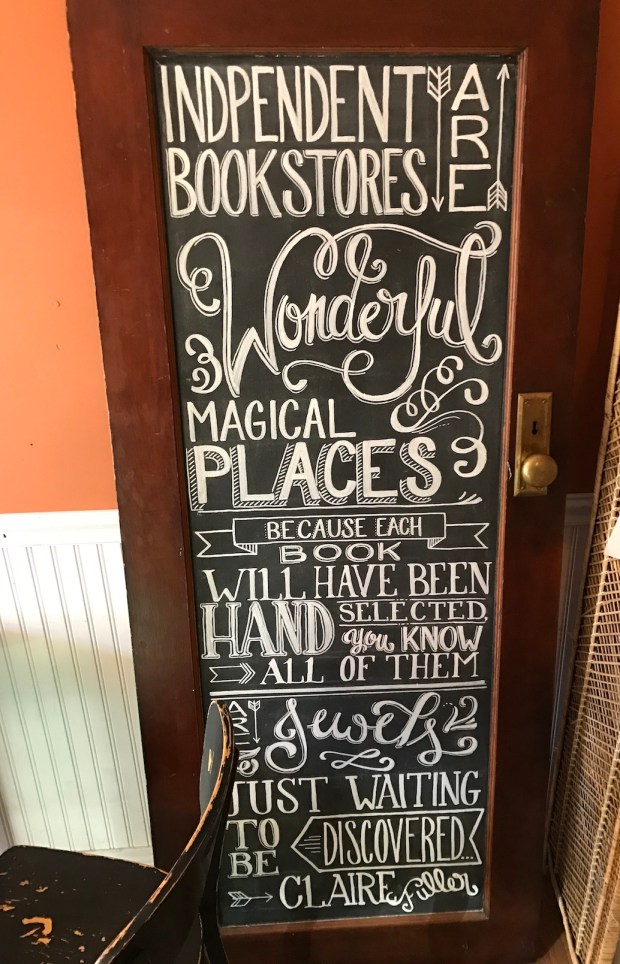 INDPENDENT
BOOKSTORES ARE
Wonderful
MAGICAL
PLACES
BECAUSE EACH
BOOK
WILL HAVE BEEN
HAND SELECTED,
you KNOW
ALL OF THEM
Jewels
JUST WAITING
TO BE DISCOVERED...
CLAIRE Fuller